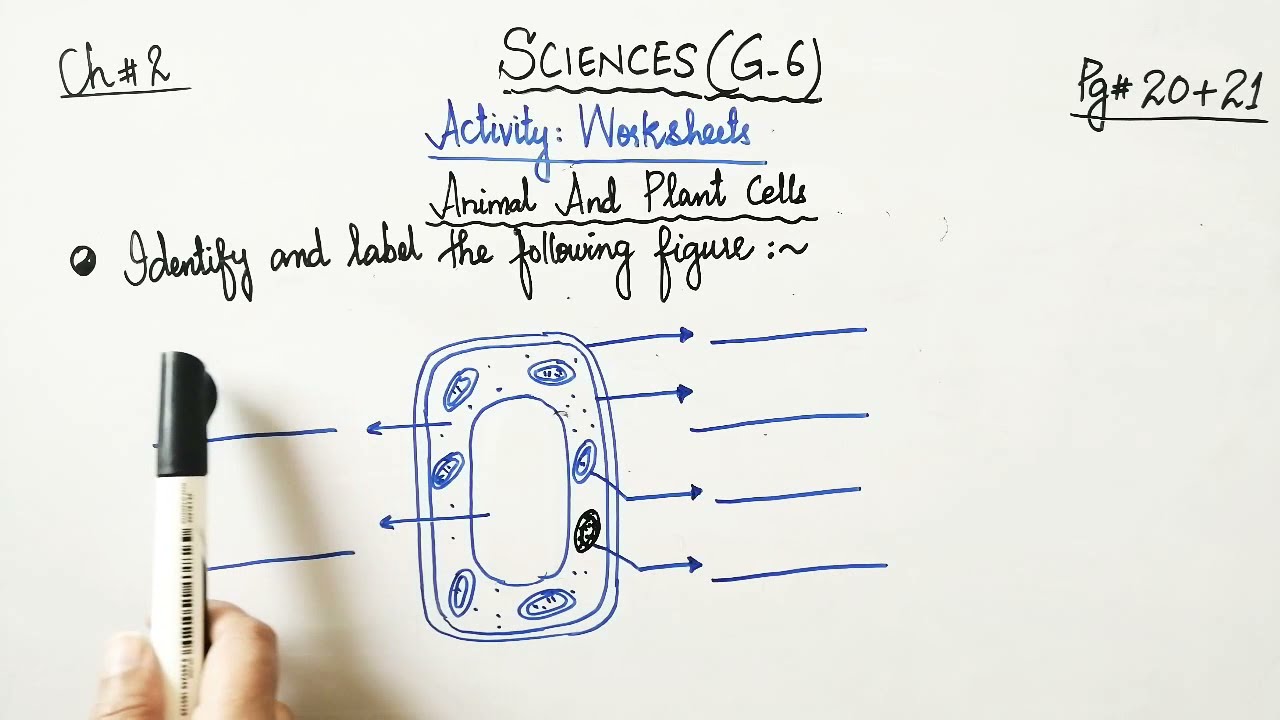 Ch # 2
SCIENCES (G-6)
Pg # 20+21
Activity: Worksheets
Animal And Plant Cells
Identify and label the following figure :~